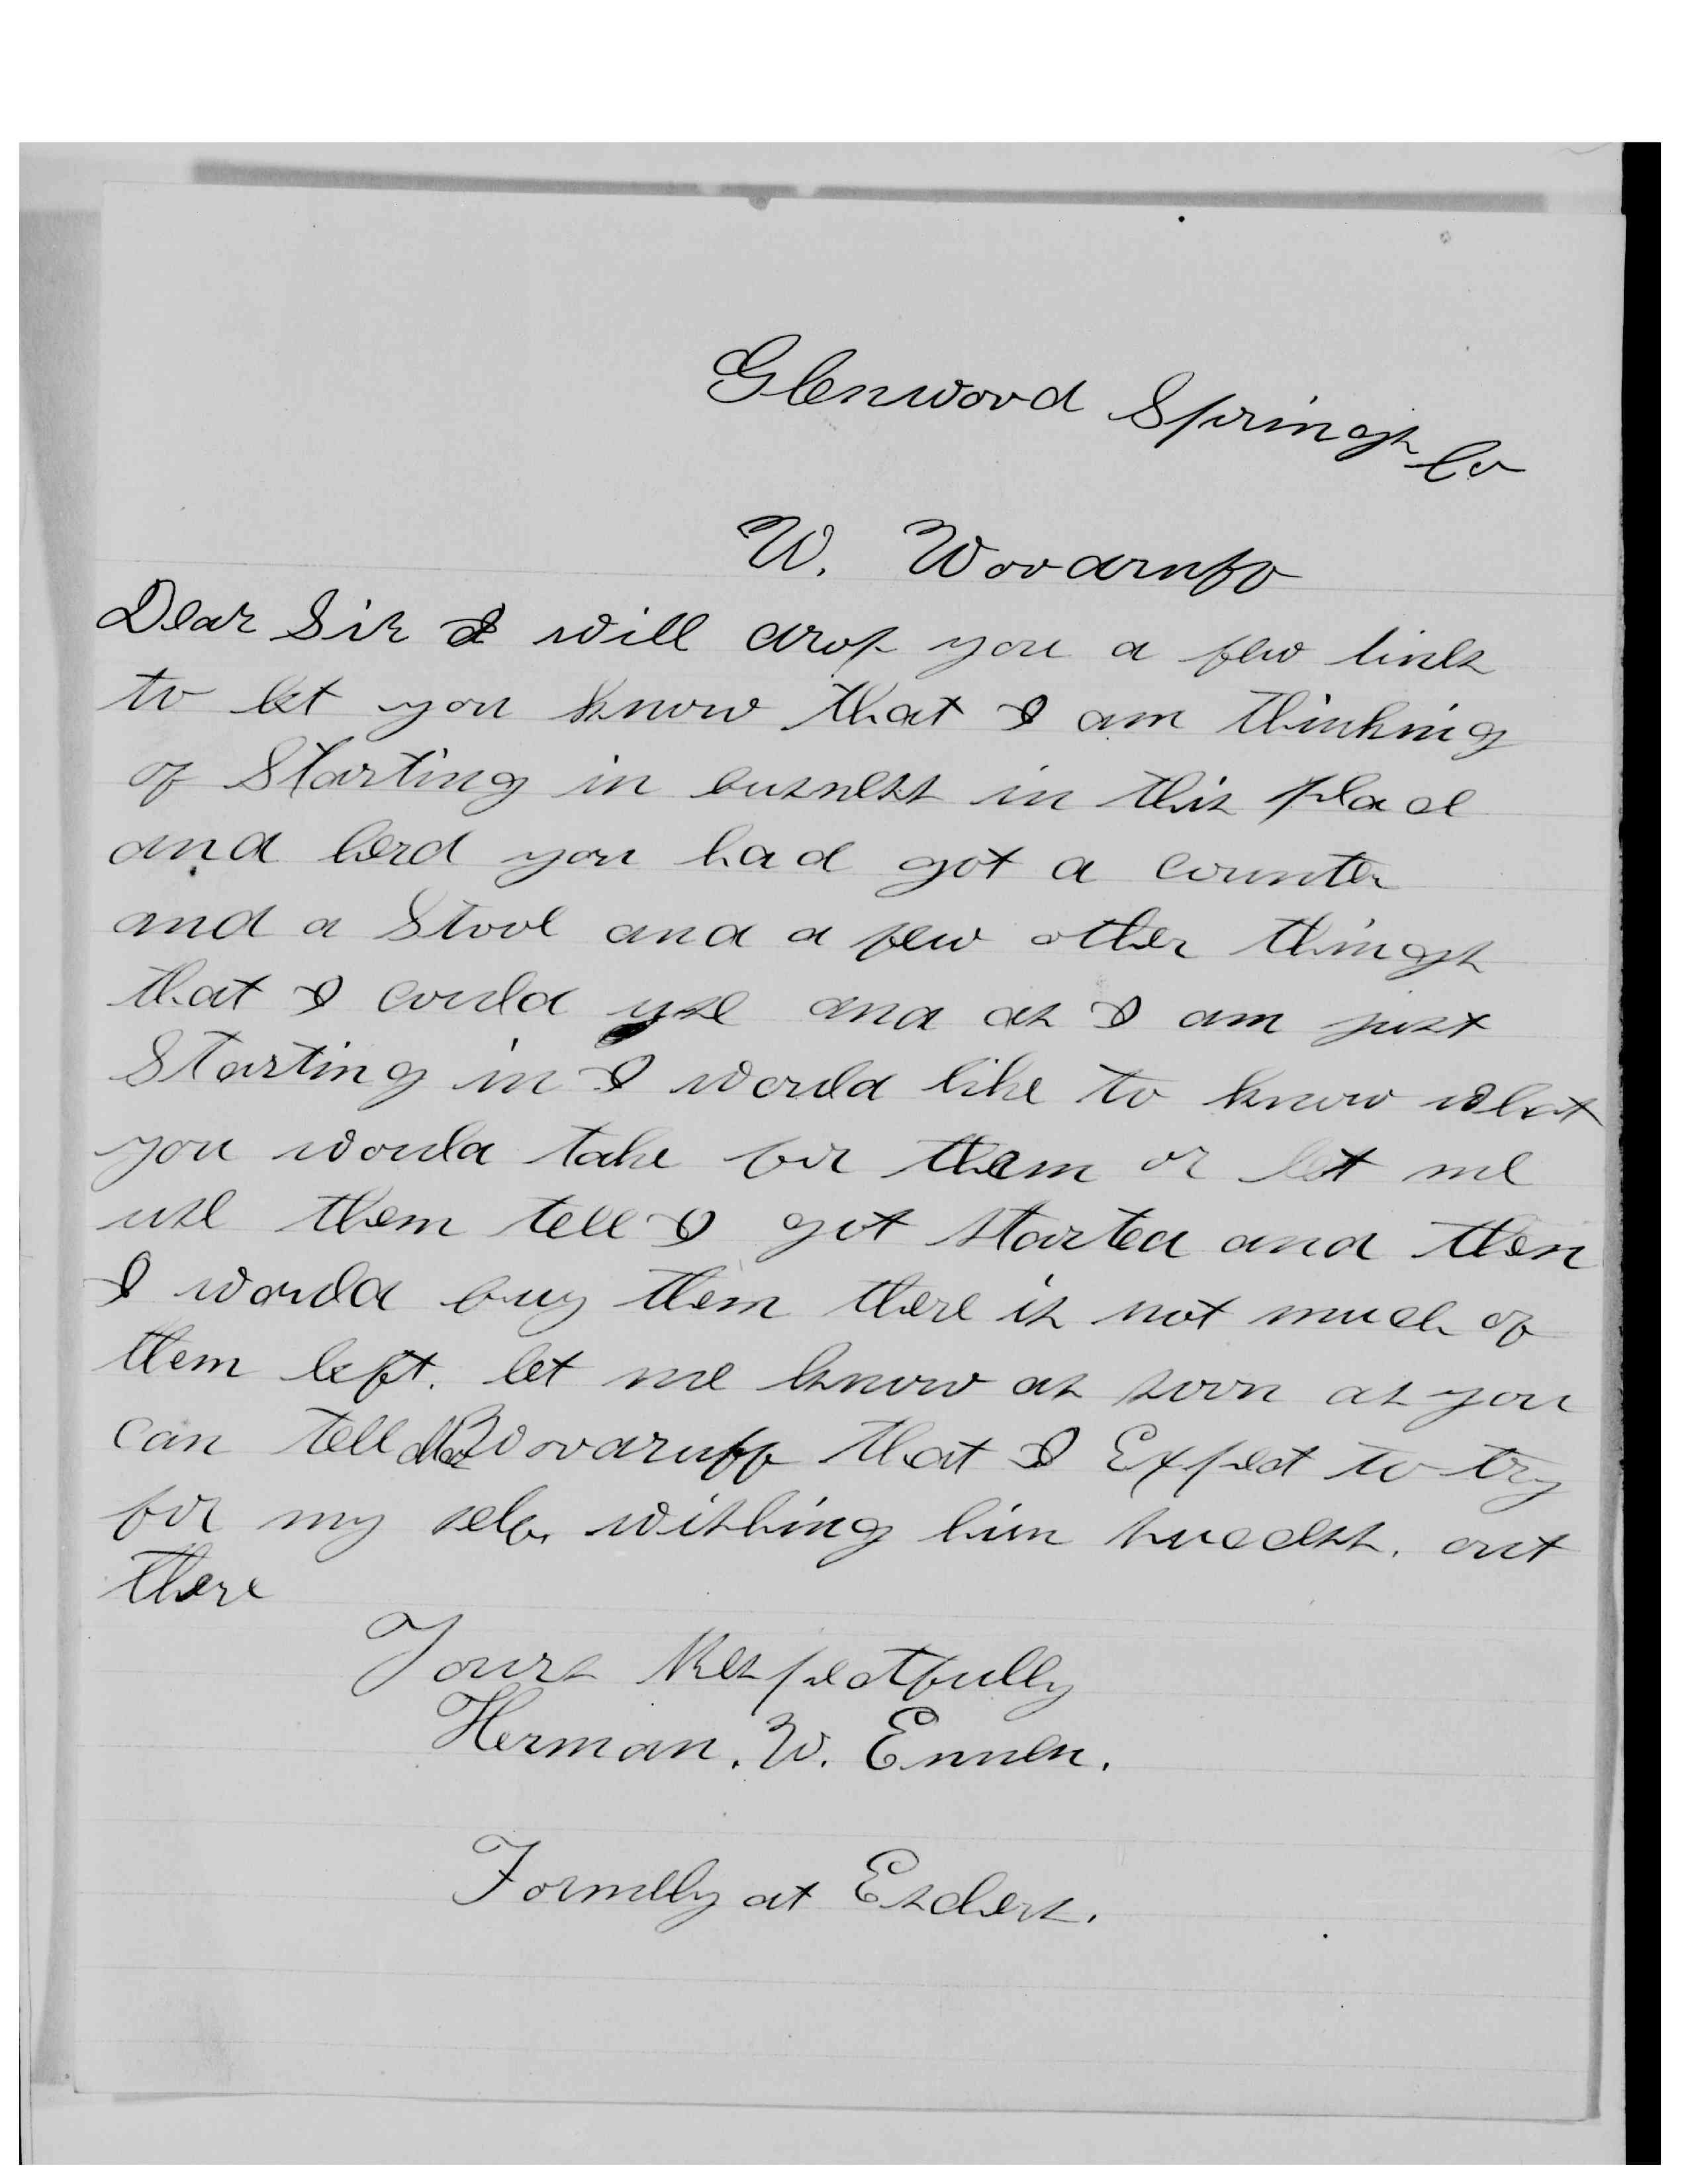 Glenwood Springs Co
W. Woodruff
Dear Sir I will drop you a few lines
to let you know that I am thinking
of Starting in busness in this place
and herd you had got a counter
and a Stool and a few other things
that I could use and as I am just
Starting in I would like to know what
you would take for them or let me
use them tell I got started and then
I would buy them there is not much of
them left. let me know as soon as you
can tell Woodruff that I Expect to try
for my self. wishhing him sucess. out
there
Yours Respectfully
Herman. W. Ennen.
Formelly at Esders.